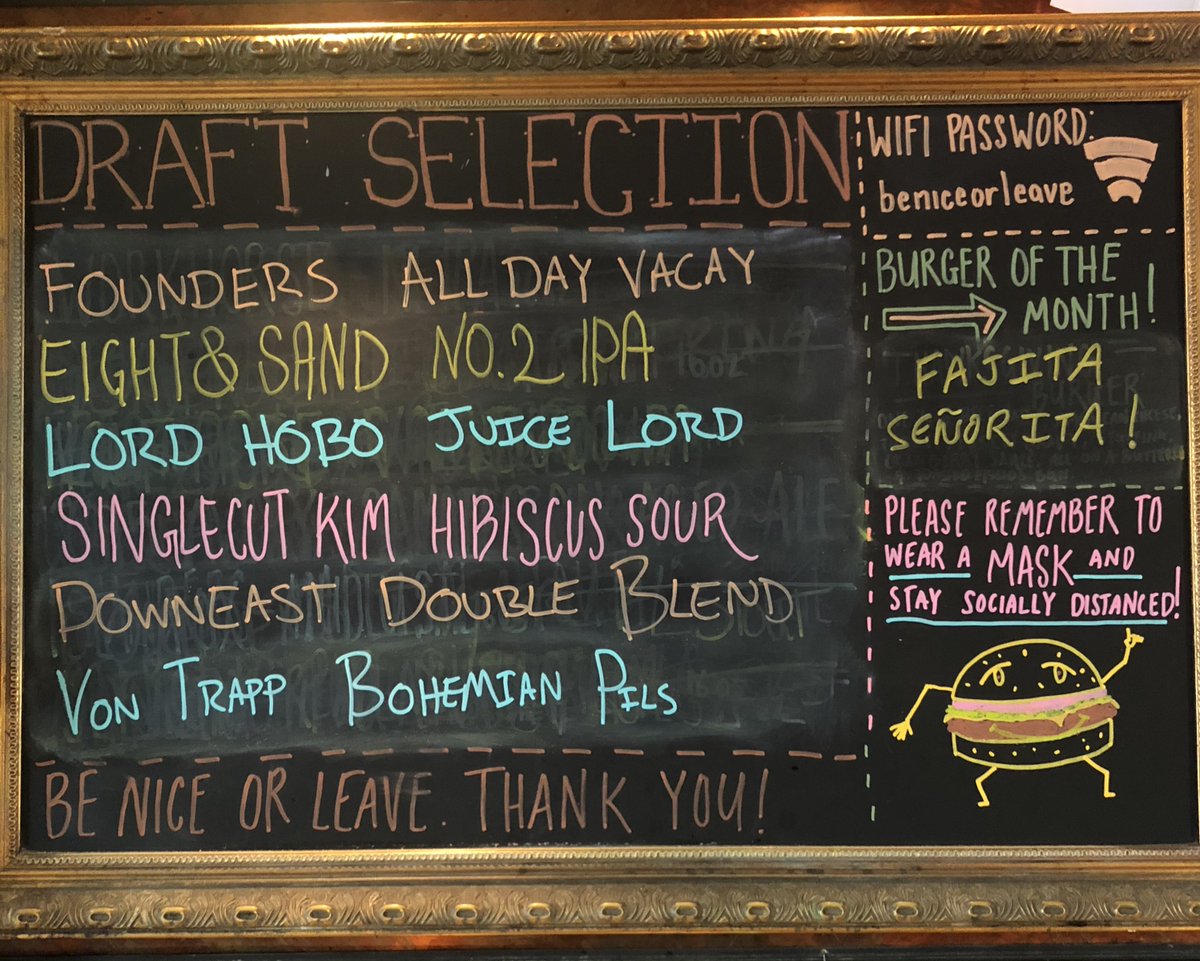 DRAFT SELECTION
FOUNDERS ALL DAY VACAY
EIGHT & SAND NO.2 IPA
LORD HOBO JUICE LORD
SINGLECUT KIM HIBISCUS SOUR
DOWNEAST DOUBLE BLEND
VON TRAPP BOHEMIAN PILS
BE NICE OR LEAVE. THANK YOU!
WIFI PASSWORD:
beniceorleave
BURGER OF THE
MONTH!
FAJITA
SEÑORITA!
PLEASE REMEMBER TO
WEAR A MASK AND
STAY SOCIALLY DISTANCED!